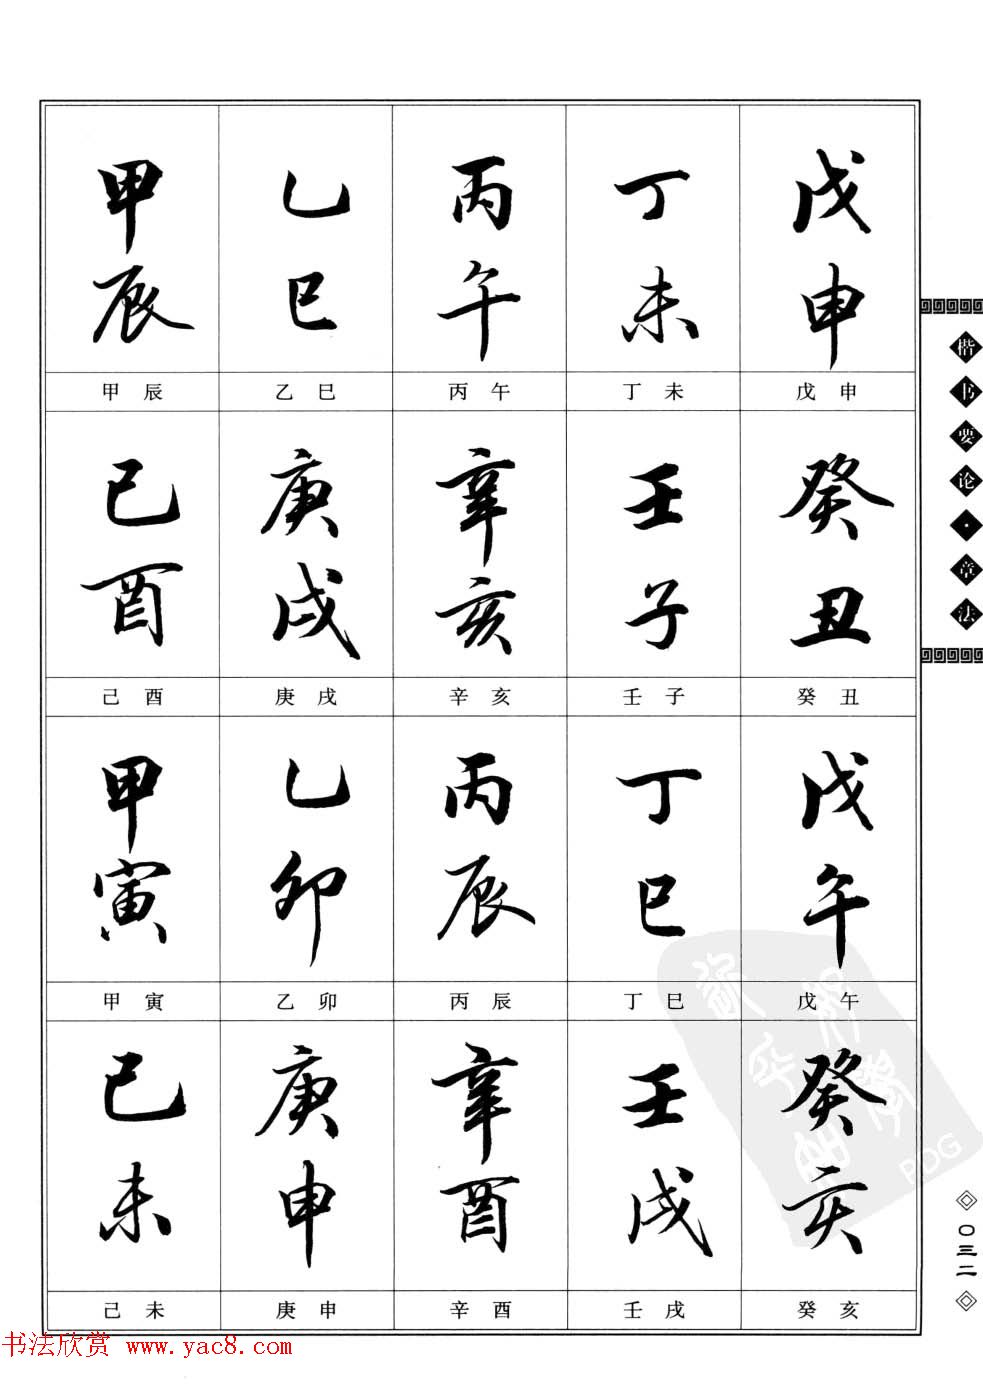 甲辰 乙巳 丙午 丁未 戊申
甲辰 乙巳 丙午 丁未 戊申
己酉 庚戌 辛亥 壬子 癸丑
己酉 庚戌 辛亥 壬子 癸丑
甲寅 乙卯 丙辰 丁巳 戊午
甲寅 乙卯 丙辰 丁巳 戊午
己未 庚申 辛酉 壬戌 癸亥
己未 庚申 辛酉 壬戌 癸亥
楷书要论·章法
〇三二
PDG
书法欣赏 www.yac8.com